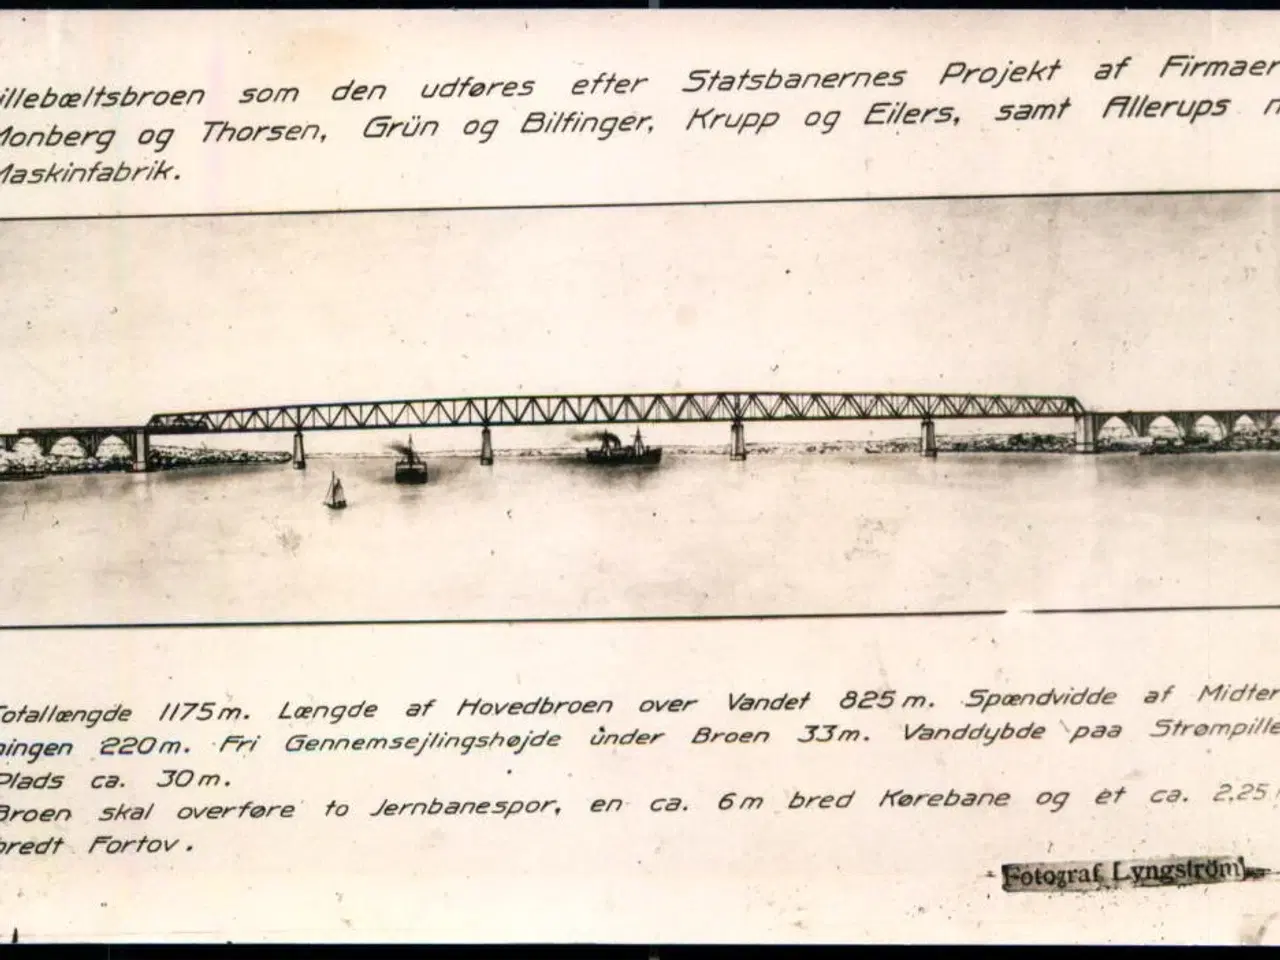 illebæltsbroen som den udføres efter Statsbanernes Projekt af Firmaer
Monberg og Thorsen, Grün og Bilfinger, Krupp og Eilers, samt Allerups
Maskinfabrik.
Totallængde 1175m. Længde af Hovedbroen over Vandet 825m. Spændvidde af Midter
ningen 220m. Fri Gennemsejlingshøjde under Broen 33m. Vanddybde paa Strømpille
Plads ca. 30m.
Broen skal overføre to Jernbanespor, en ca. 6m bred Kørebane og et ca. 2,25
bredt Fortov.
Fotograf Lyngström